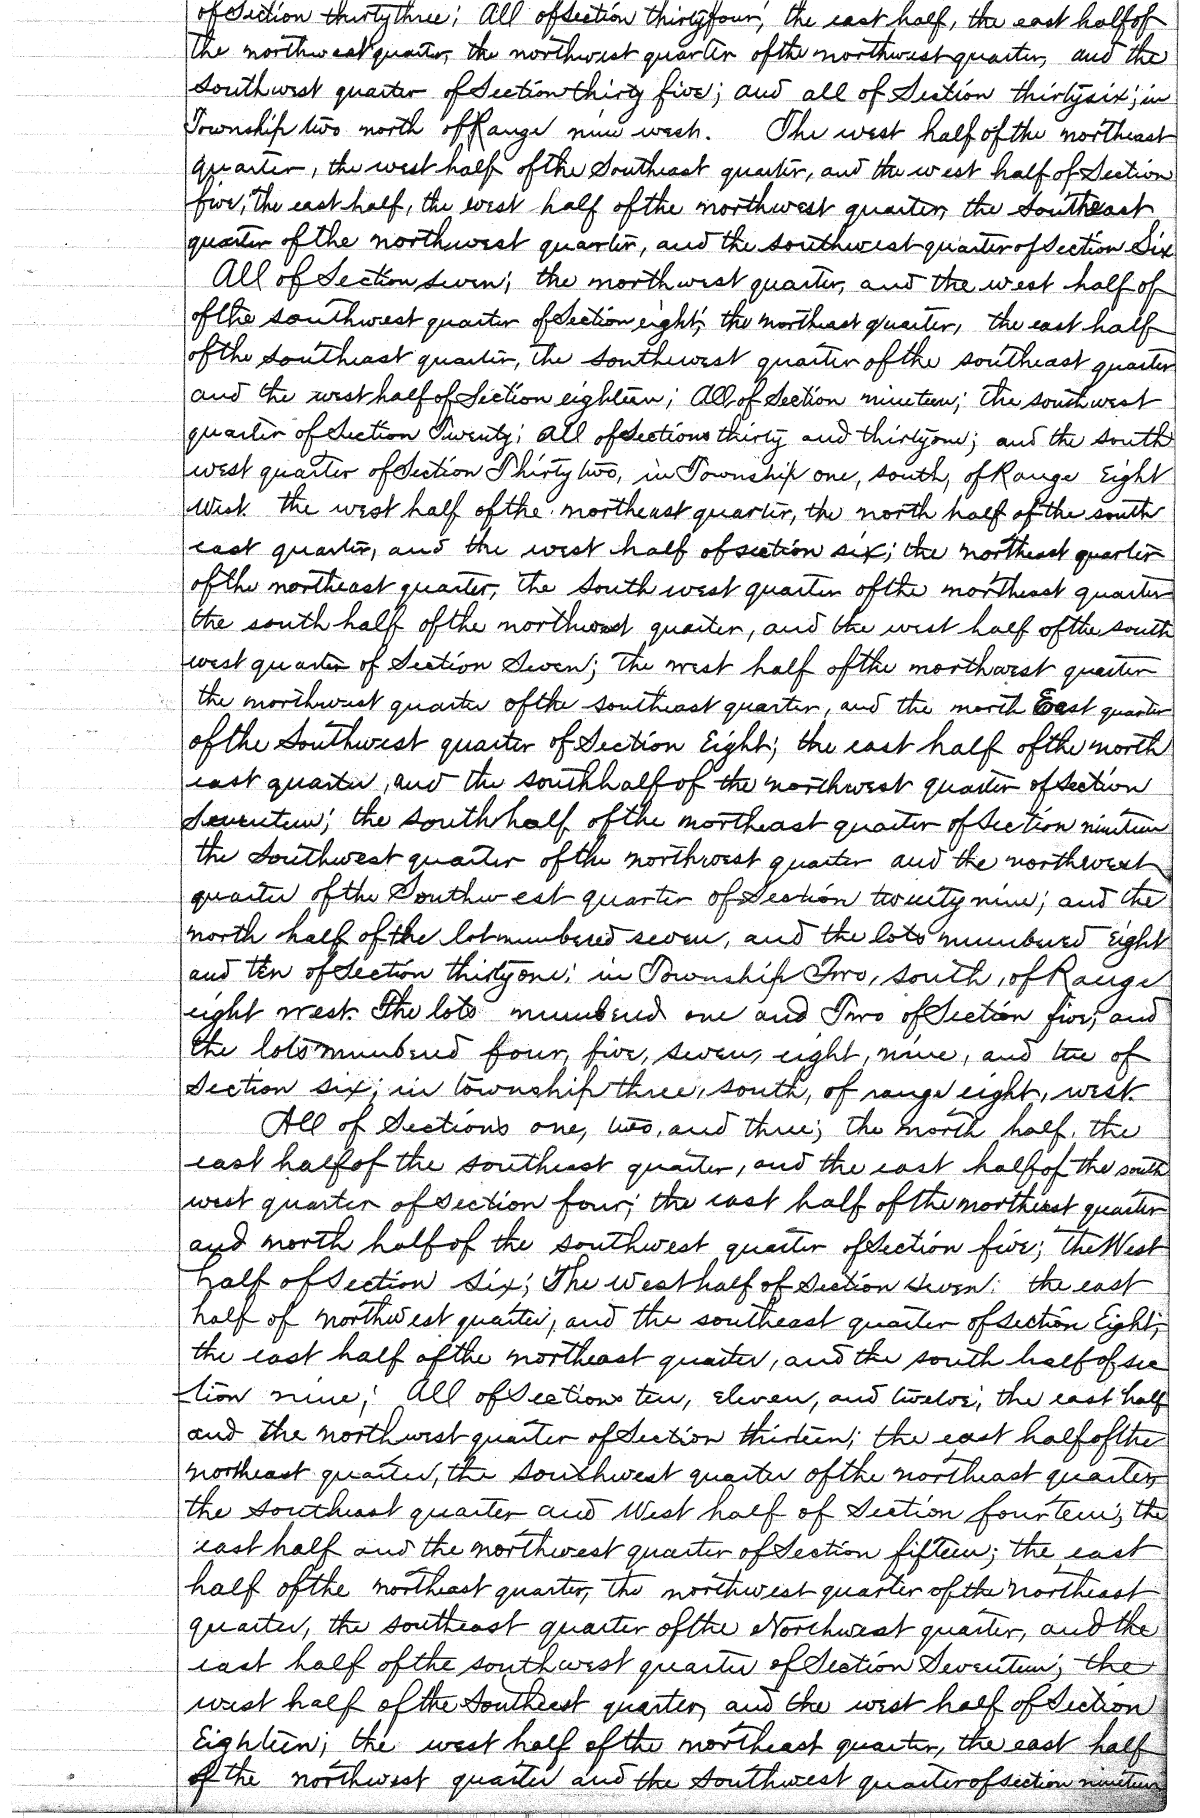 of Section thirty three; All of Section thirty four; the east half, the east half of
the northwest quarter, the northwest quarter of the northwest quarter, and the
southwest quarter of Section thirty five; and all of Section thirty six; in
Township two north of Range nine west. The west half of the northeast
quarter, the west half of the Southeast quarter, and the west half of Section
five; the east half, the west half of the northwest quarter, the southeast
quarter of the northwest quarter, and the southwest quarter of Section Six
All of Section seven; the northwest quarter, and the west half of
of the southwest quarter of Section eight; the northeast quarter, the east half
of the southeast quarter, the southwest quarter of the southeast quarter
and the west half of Section eighteen; All of Section nineteen; the southwest
quarter of Section Twenty; all of Sections thirty and thirty one; and the south
west quarter of Section Thirty two, in Township one, south, of Range Eight
West. the west half of the northeast quarter, the north half of the south
east quarter, and the west half of section six; the northeast quarter
of the northeast quarter, the South west quarter of the northeast quarter
the south half of the northwest quarter, and the west half of the south
west quarter of Section Seven; the west half of the northwest quarter
the northwest quarter of the southeast quarter, and the north East quarter
of the Southwest quarter of Section Eight; the east half of the north
east quarter, and the south half of the northwest quarter of section
Seventeen; the south half of the northeast quarter of Section nineteen
the Southwest quarter of the northwest quarter and the northwest
quarter of the Southwest quarter of Section twenty nine; and the
north half of the lot numbered seven, and the lots numbered Eight
and ten of Section thirty one; in Township Two, south, of Range
eight west. The lots numbered one and Two of Section five, and
the lots numbered four, five, seven, eight, nine, and ten of
Section six; in township three, south, of range eight, west.
All of Sections one, two, and three; the north half, the
east half of the southeast quarter, and the east half of the south
west quarter of Section four; the east half of the northeast quarter
and north half of the southwest quarter of Section five; the West
half of Section Six; The west half of Section seven; the east
half of northwest quarter, and the southeast quarter of section Eight;
the east half of the northeast quarter, and the south half of sec
tion nine; All of Sections ten, eleven, and twelve; the east half
and the northwest quarter of Section thirteen; the east half of the
northeast quarter, the southwest quarter of the northeast quarter,
the southeast quarter and West half of Section fourteen; the
east half and the northwest quarter of Section fifteen; the east
half of the northeast quarter, the northwest quarter of the northeast
quarter, the southeast quarter of the Northwest quarter, and the
east half of the southwest quarter of Section Seventeen; the
west half of the Southeast quarter, and the west half of Section
Eighteen; the west half of the northeast quarter, the east half
of the northwest quarter and the southwest quarter of section nineteen